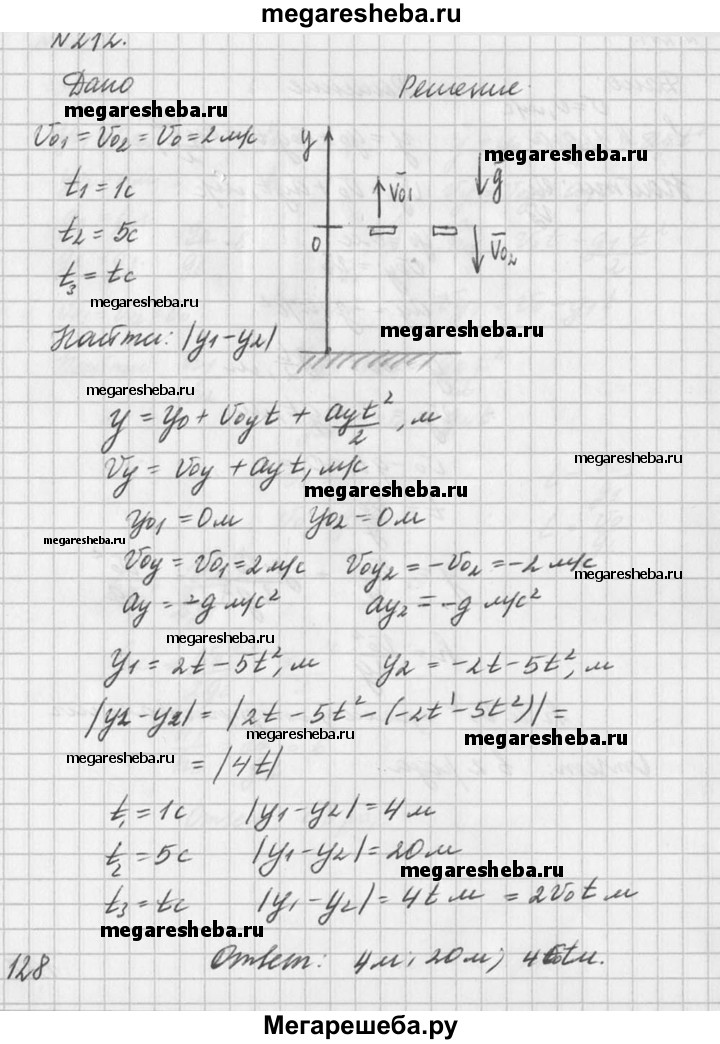 megaresheba.ru
N212.
Дано Решение.
megaresheba.ru
V01 = V02 = V0 = 2 м/с
y
megaresheba.ru
V01 g
t1 = 1с
t2 = 5с
0
V02
t3 = tс
megaresheba.ru
megaresheba.ru
Найти: |y1-y2|
megaresheba.ru
y = y0 + V0y t + ay t²/2, м
Vy = V0y + ay t, м/с
megaresheba.ru
megaresheba.ru
y01 = 0м y02 = 0м
megaresheba.ru
V0y = V01 = 2 м/с V0y2 = -V02 = -2 м/с
megaresheba.ru
ay = -g м/с² ay2 = -g м/с²
megaresheba.ru
y1 = 2t - 5t², м y2 = -2t - 5t², м
|y1 - y2| = |2t - 5t² - (-2t - 5t²)| =
megaresheba.ru
megaresheba.ru
megaresheba.ru
= |4t|
t1 = 1с |y1 - y2| = 4м
t2 = 5с |y1 - y2| = 20м
megaresheba.ru
t3 = tс |y1 - y2| = 4t м = 2V0t м
megaresheba.ru
128 Ответ: 4м; 20м; 4tм.
Мегарешеба.ру